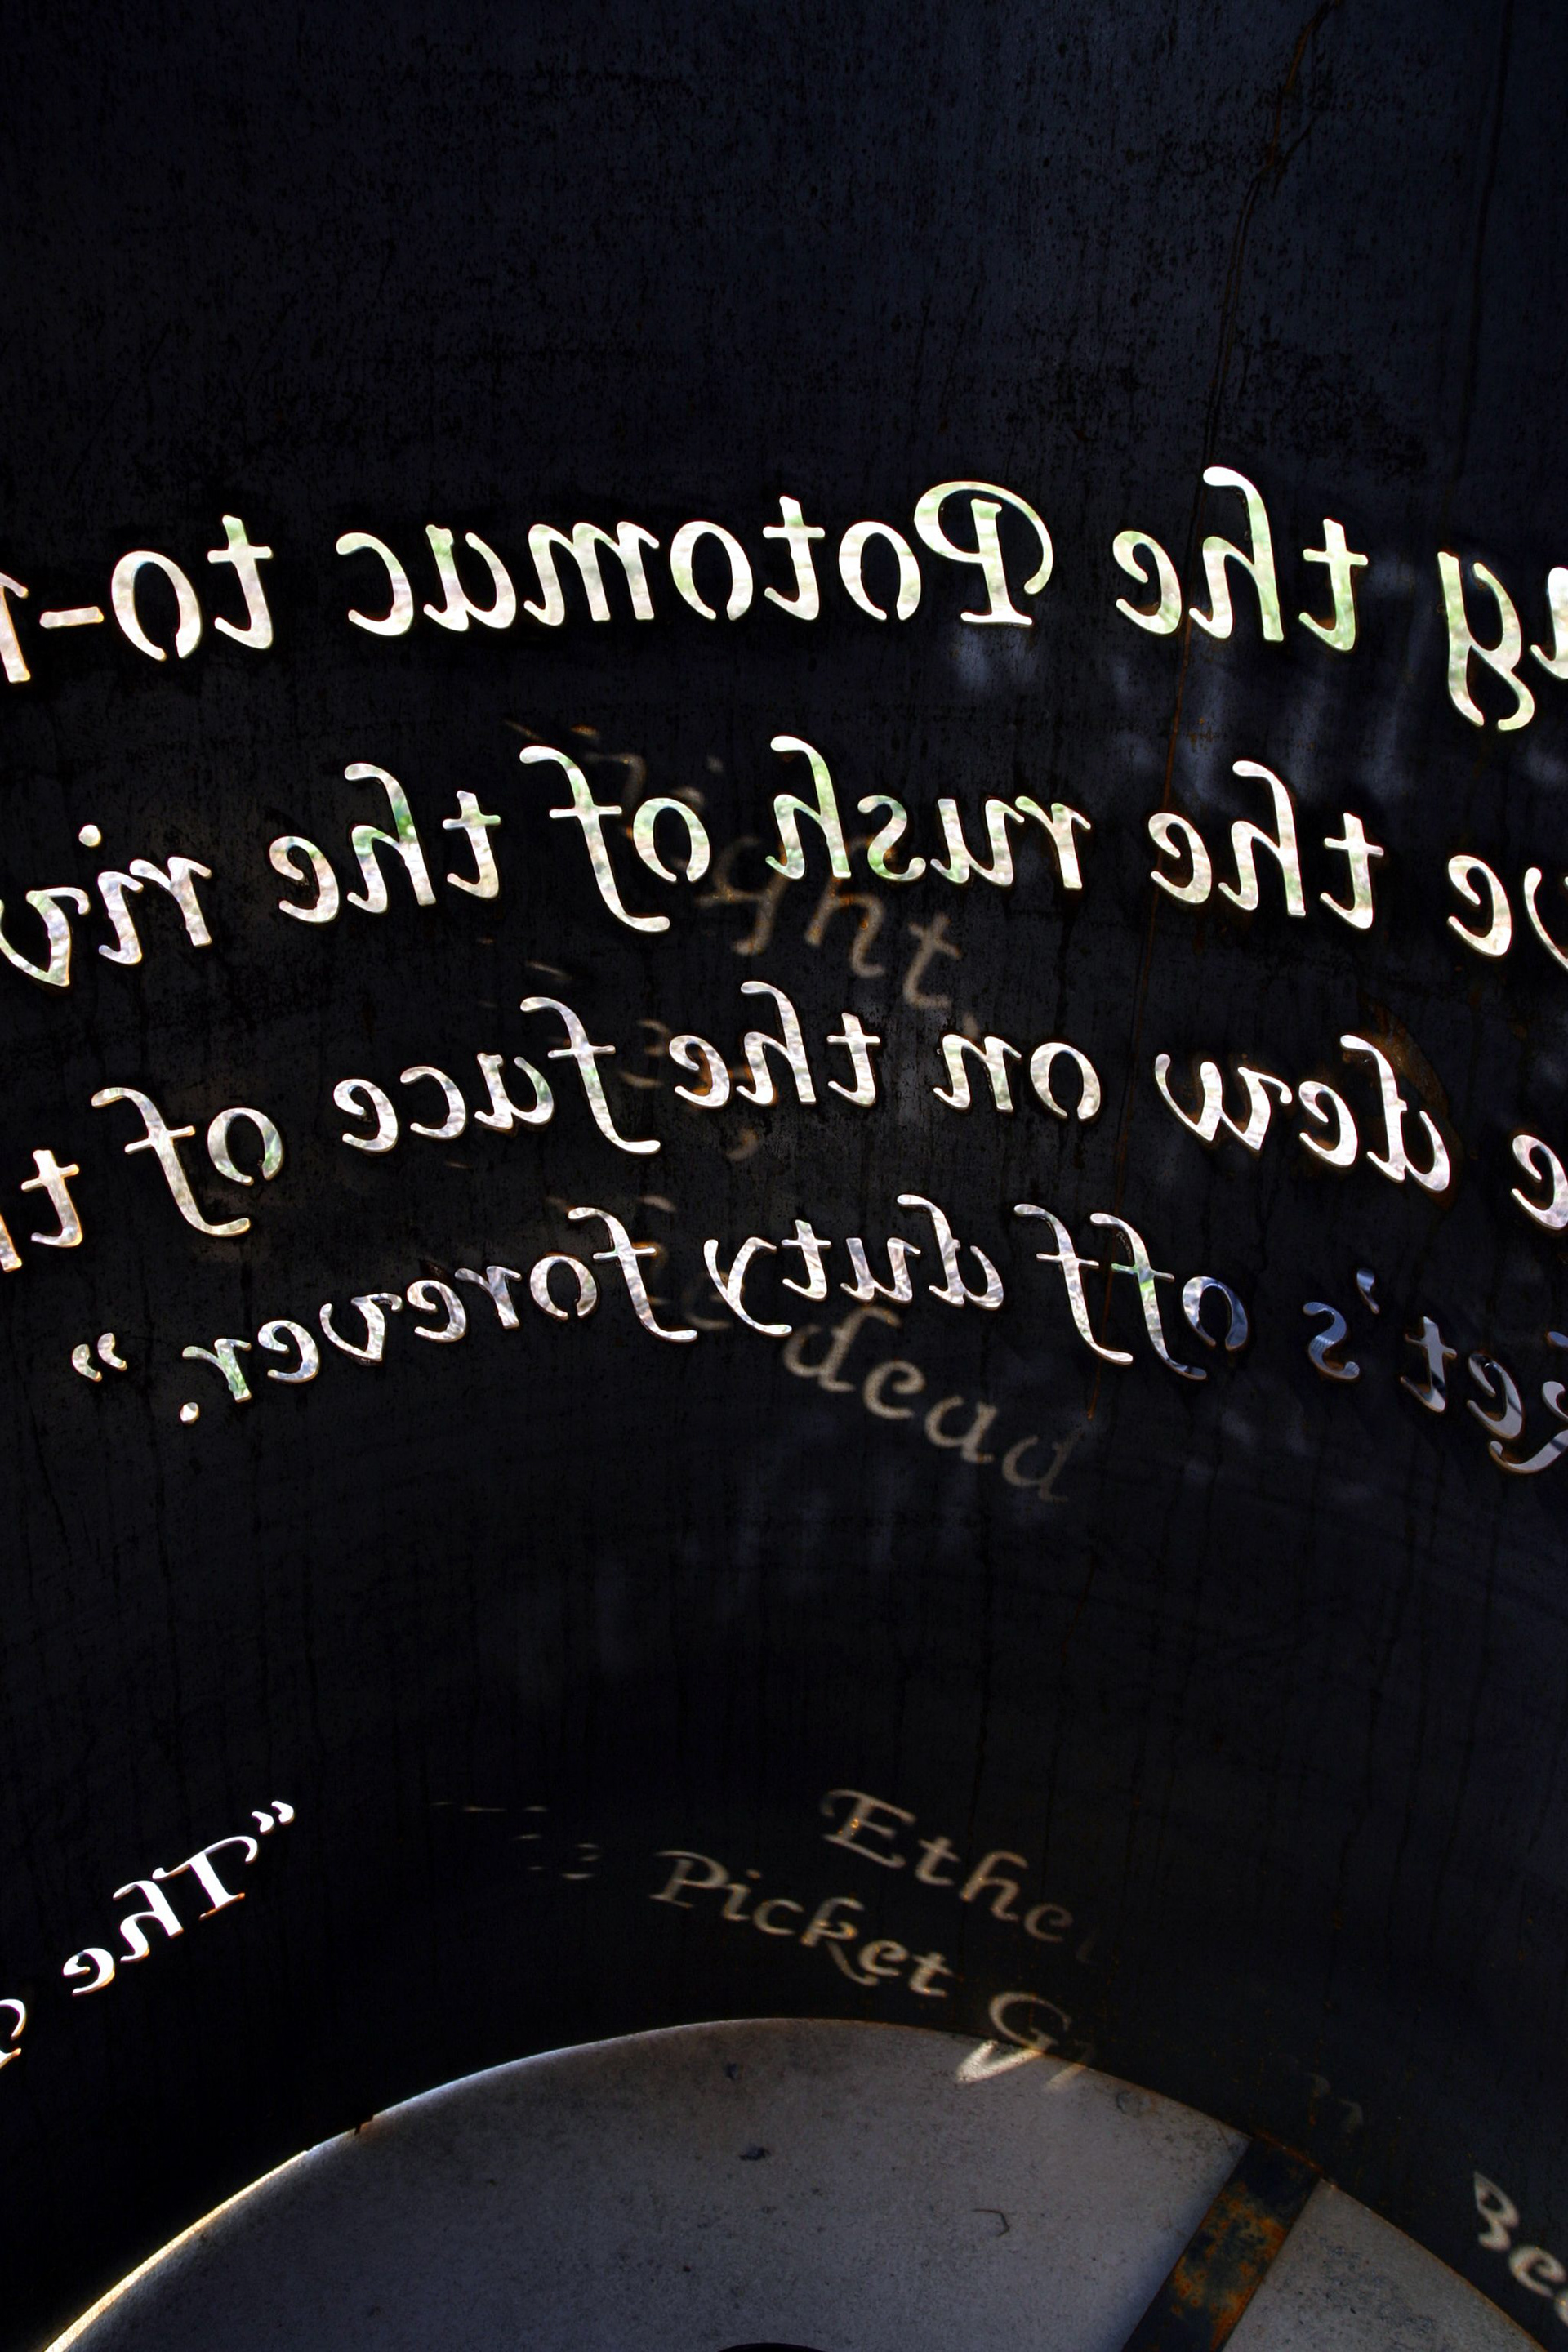 the Potomac to-
the rush of the riv
dew on the face of
et's off duty forever.”
ght,
dead
“The
Ethel
Picket G
Be